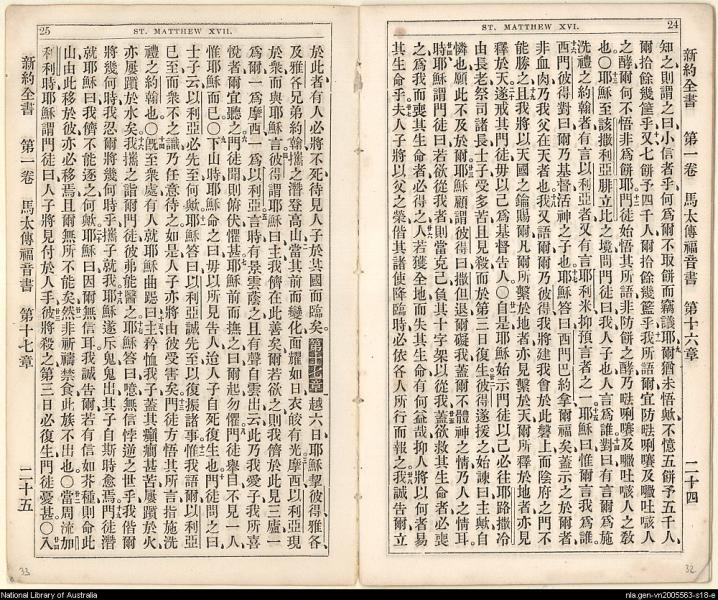 24
ST. MATTHEW XVI.
新約全書　第一卷　馬太傳福音書　第十六章　二十四
知之則謂之曰小信者乎何爲爾不取餅而竊議耶爾猶未悟歟不憶五餅予五千人
爾拾餘幾筐乎又七餅予四千人爾拾餘幾籃乎我所語爾宜防唎及吐咳人
之酵爾何不悟非爲餅耶門徒始悟其所語非防餅之酵乃唎及吐咳人之敎
也〇耶穌至該撒利亞腓立比之境問門徒曰我人子也人言爲誰對曰有言爾爲施
洗禮之約翰者有言以利亞者又有言耶利米抑預言者之一耶穌曰惟爾言我爲誰
西門彼得對曰爾乃基督活神之子也耶穌答曰西門巴約拿爾福矣蓋示之於爾者
非血肉乃我父在天者也我又語爾爾乃彼得我將建我會於此磐上而陰府之門不
能勝之且我將以天國之鑰賜爾凡爾所繫於地者亦見繫於天爾所釋於地者亦見
釋於天遂戒其門徒毋以己爲基督告人〇自是耶穌始示門徒以己必往耶路撒冷
由長老祭司諸長士子受多苦且見殺而於第三日復生彼得遂援之始諫曰主歟自
憐也願此不及於爾耶穌顧謂彼得曰撒但退爾礙我蓋爾不體神之情乃人之情耳
時耶穌謂其門徒曰若欲從我者則當克己負其十字架以從我蓋欲救其生命者必喪
之爲我而喪其生命者必得之人若獲全地而失其生命有何益哉抑人將以何者易
其生命乎夫人子將以父之榮偕其諸使降臨時必依各人所行而報之我誠告爾立
32
25
ST. MATTHEW XVII.
於此者有人必將不死待見人子於其國而臨矣第十七章越六日耶穌挈彼得雅各
及雅各兄弟約翰攜之潛登高山當其前而變化面耀如日衣皎有光摩西以利亞現
於衆而與耶穌言彼得謂耶穌曰主我儕在此善矣爾若欲之則我儕於此建三廬一
爲爾一爲摩西一爲以利亞言時有景雲蔭之且有聲自雲出云此乃我愛子我所喜
悅者爾宜聽之門徒聞則俯伏懼甚耶穌前而撫之曰爾起勿懼門徒舉目不見一人
惟耶穌而已〇下山時耶穌命之曰毋以所見告人迨人子自死復生也門徒問之曰
士子云以利亞必先至何歟耶穌答曰以利亞誠先至以復振諸事惟我語爾以利亞
已至而衆不之識乃任意待之如是人子亦將由彼受害矣門徒方悟其所言指施洗
禮之約翰也〇旣至衆處有人就耶穌曲跽曰主矜恤我子蓋其癲癇甚苦屢躓於火
亦屢躓於水矣我攜之詣爾門徒彼弗能醫之耶穌答曰噫無信悖逆之世乎我偕爾
將幾何時我忍爾將幾何時乎攜子就我耶穌遂斥鬼鬼出其子自斯時愈焉門徒潛
就耶穌曰我儕不能逐之何歟耶穌曰因爾無信耳我誠告爾若有信如芥種則命此
山由此移於彼亦必移焉且爾無所不能矣然非祈禱禁食此族不出也〇當周流加
利利時耶穌謂門徒曰人子將見付於人手彼將殺之第三日必復生門徒憂甚〇入
新約全書　第一卷　馬太傳福音書　第十七章　二十五
33
National Library of Australia
nla.gen-vn2005563-s18-e